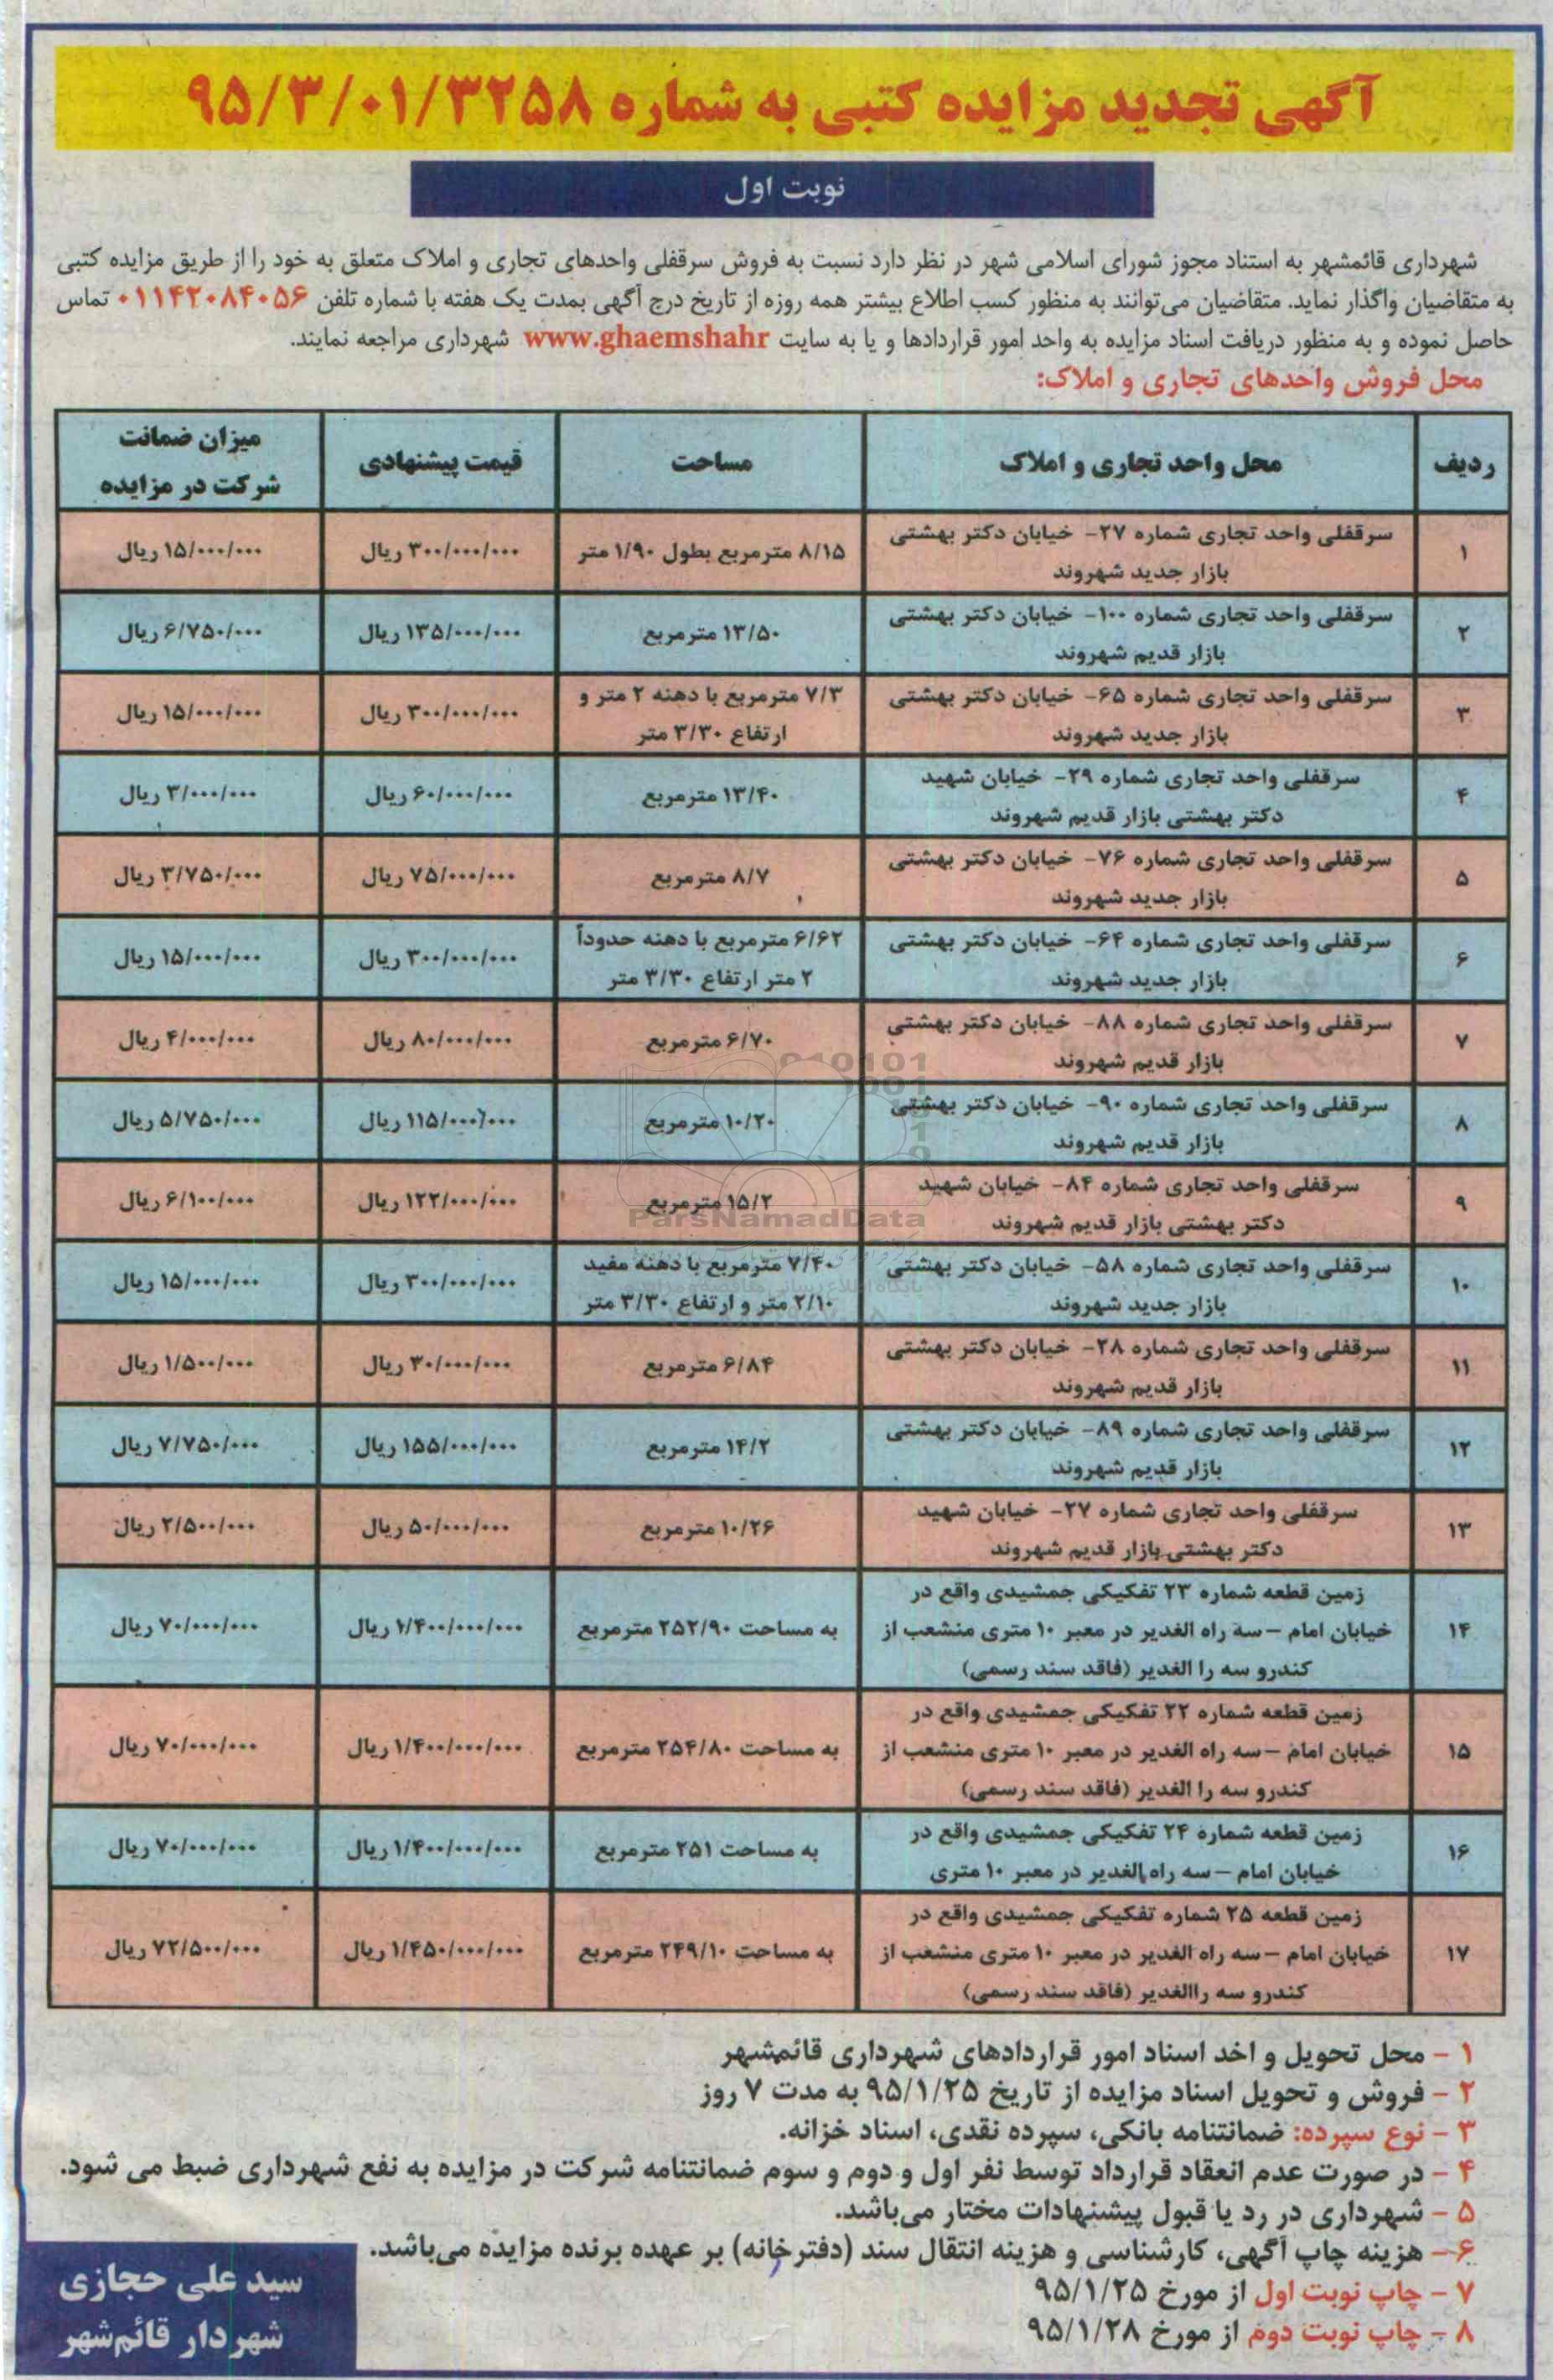 آگهی تجدید مزایده کتبی به شماره ۹۵/۳/۰۱/۳۲۵۸
نوبت اول
شهرداری قائمشهر به استناد مجوز شورای اسلامی شهر در نظر دارد نسبت به فروش سرقفلی واحدهای تجاری و املاک متعلق به خود را از طریق مزایده کتبی
به متقاضیان واگذار نماید. متقاضیان می‌توانند به منظور کسب اطلاع بیشتر همه روزه از تاریخ درج آگهی بمدت یک هفته با شماره تلفن ۰۱۱۴۲۰۸۴۰۵۶ تماس
حاصل نموده و به منظور دریافت اسناد مزایده به واحد امور قراردادها و یا به سایت www.ghaemshahr شهرداری مراجعه نمایند.
محل فروش واحدهای تجاری و املاک:
ردیف | محل واحد تجاری و املاک | مساحت | قیمت پیشنهادی | میزان ضمانت
شرکت در مزایده
۱ | سرقفلی واحد تجاری شماره ۲۷- خیابان دکتر بهشتی | ۸/۱۵ مترمربع بطول ۱/۹۰ متر | ۳۰۰/۰۰۰/۰۰۰ ریال | ۱۵/۰۰۰/۰۰۰ ریال
بازار جدید شهروند
۲ | سرقفلی واحد تجاری شماره ۱۰۰- خیابان دکتر بهشتی | ۱۳/۵۰ مترمربع | ۱۳۵/۰۰۰/۰۰۰ ریال | ۶/۷۵۰/۰۰۰ ریال
بازار قدیم شهروند
۳ | سرقفلی واحد تجاری شماره ۶۵- خیابان دکتر بهشتی | ۷/۳ مترمربع با دهنه ۲ متر و | ۳۰۰/۰۰۰/۰۰۰ ریال | ۱۵/۰۰۰/۰۰۰ ریال
بازار جدید شهروند | ارتفاع ۳/۳۰ متر
۴ | سرقفلی واحد تجاری شماره ۲۹- خیابان شهید | ۱۳/۴۰ مترمربع | ۶۰/۰۰۰/۰۰۰ ریال | ۳/۰۰۰/۰۰۰ ریال
دکتر بهشتی بازار قدیم شهروند
۵ | سرقفلی واحد تجاری شماره ۷۶- خیابان دکتر بهشتی | ۸/۷ مترمربع | ۷۵/۰۰۰/۰۰۰ ریال | ۳/۷۵۰/۰۰۰ ریال
بازار جدید شهروند
۶ | سرقفلی واحد تجاری شماره ۶۴- خیابان دکتر بهشتی | ۶/۶۲ مترمربع با دهنه حدوداً | ۳۰۰/۰۰۰/۰۰۰ ریال | ۱۵/۰۰۰/۰۰۰ ریال
بازار جدید شهروند | ۲ متر ارتفاع ۳/۳۰ متر
۷ | سرقفلی واحد تجاری شماره ۸۸- خیابان دکتر بهشتی | ۶/۷۰ مترمربع | ۸۰/۰۰۰/۰۰۰ ریال | ۴/۰۰۰/۰۰۰ ریال
بازار قدیم شهروند
۸ | سرقفلی واحد تجاری شماره ۹۰- خیابان دکتر بهشتی | ۱۰/۲۰ مترمربع | ۱۱۵/۰۰۰/۰۰۰ ریال | ۵/۷۵۰/۰۰۰ ریال
بازار قدیم شهروند
۹ | سرقفلی واحد تجاری شماره ۸۴- خیابان شهید | ۱۵/۲ مترمربع | ۱۲۲/۰۰۰/۰۰۰ ریال | ۶/۱۰۰/۰۰۰ ریال
دکتر بهشتی بازار قدیم شهروند
ParsNamadData
۱۰ | سرقفلی واحد تجاری شماره ۵۸- خیابان دکتر بهشتی | ۷/۴۰ مترمربع با دهنه مفید | ۳۰۰/۰۰۰/۰۰۰ ریال | ۱۵/۰۰۰/۰۰۰ ریال
بازار جدید شهروند | ۲/۱۰ متر و ارتفاع ۳/۳۰ متر
۱۱ | سرقفلی واحد تجاری شماره ۲۸- خیابان دکتر بهشتی | ۶/۸۴ مترمربع | ۳۰/۰۰۰/۰۰۰ ریال | ۱/۵۰۰/۰۰۰ ریال
بازار قدیم شهروند
۱۲ | سرقفلی واحد تجاری شماره ۸۹- خیابان دکتر بهشتی | ۱۴/۲ مترمربع | ۱۵۵/۰۰۰/۰۰۰ ریال | ۷/۷۵۰/۰۰۰ ریال
بازار قدیم شهروند
۱۳ | سرقفلی واحد تجاری شماره ۲۷- خیابان شهید | ۱۰/۲۶ مترمربع | ۵۰/۰۰۰/۰۰۰ ریال | ۲/۵۰۰/۰۰۰ ریال
دکتر بهشتی بازار قدیم شهروند
زمین قطعه شماره ۲۳ تفکیکی جمشیدی واقع در
۱۴ | خیابان امام –سه راه الغدیر در معبر ۱۰ متری منشعب از | به مساحت ۲۵۲/۹۰ مترمربع | ۱/۴۰۰/۰۰۰/۰۰۰ ریال | ۷۰/۰۰۰/۰۰۰ ریال
کندرو سه را الغدیر (فاقد سند رسمی)
زمین قطعه شماره ۲۲ تفکیکی جمشیدی واقع در
۱۵ | خیابان امام –سه راه الغدیر در معبر ۱۰ متری منشعب از | به مساحت ۲۵۴/۸۰ مترمربع | ۱/۴۰۰/۰۰۰/۰۰۰ ریال | ۷۰/۰۰۰/۰۰۰ ریال
کندرو سه را الغدیر (فاقد سند رسمی)
۱۶ | زمین قطعه شماره ۲۴ تفکیکی جمشیدی واقع در | به مساحت ۲۵۱ مترمربع | ۱/۴۰۰/۰۰۰/۰۰۰ ریال | ۷۰/۰۰۰/۰۰۰ ریال
خیابان امام –سه راه الغدیر در معبر ۱۰ متری
زمین قطعه ۲۵ شماره تفکیکی جمشیدی واقع در
۱۷ | خیابان امام –سه راه الغدیر در معبر ۱۰ متری منشعب از | به مساحت ۲۴۹/۱۰ مترمربع | ۱/۴۵۰/۰۰۰/۰۰۰ ریال | ۷۲/۵۰۰/۰۰۰ ریال
کندرو سه راالغدیر (فاقد سند رسمی)
۱ - محل تحویل و اخذ اسناد امور قراردادهای شهرداری قائمشهر
۲ - فروش و تحویل اسناد مزایده از تاریخ ۹۵/۱/۲۵ به مدت ۷ روز
۳ - نوع سپرده: ضمانتنامه بانکی، سپرده نقدی، اسناد خزانه.
۴ - در صورت عدم انعقاد قرارداد توسط نفر اول و دوم و سوم ضمانتنامه شرکت در مزایده به نفع شهرداری ضبط می شود.
۵ - شهرداری در رد یا قبول پیشنهادات مختار می‌باشد.
۶- هزینه چاپ آگهی، کارشناسی و هزینه انتقال سند (دفترخانه) بر عهده برنده مزایده می‌باشد.
۷ - چاپ نوبت اول از مورخ ۹۵/۱/۲۵
۸ - چاپ نوبت دوم از مورخ ۹۵/۱/۲۸
سید علی حجازی
شهردار قائم‌شهر